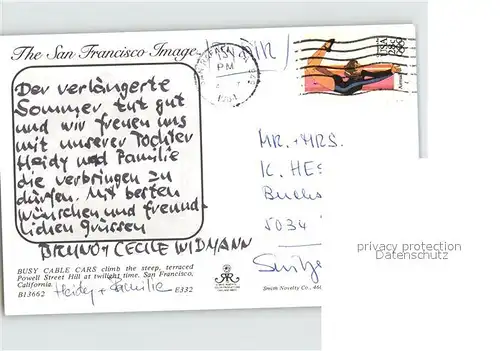 The San Francisco Image
PM
AIR
USA 28c
Der verlängerte
Sommer tut gut
und wir freuen uns
mit unserer Tochter
Heidy und Familie
die verbringen zu
dürfen. Mit besten
Wünschen und freund-
lichen Grüssen
BRUNO + CECILE WIDMANN
Heidy + Familie
MR. + MRS.
K. HES
Buchs
5034
Switze
privacy protection
Datenschutz
BUSY CABLE CARS climb the steep, terraced
Powell Street Hill at twilight time. San Francisco,
California.
B13662 E332
Smith Novelty Co., 460